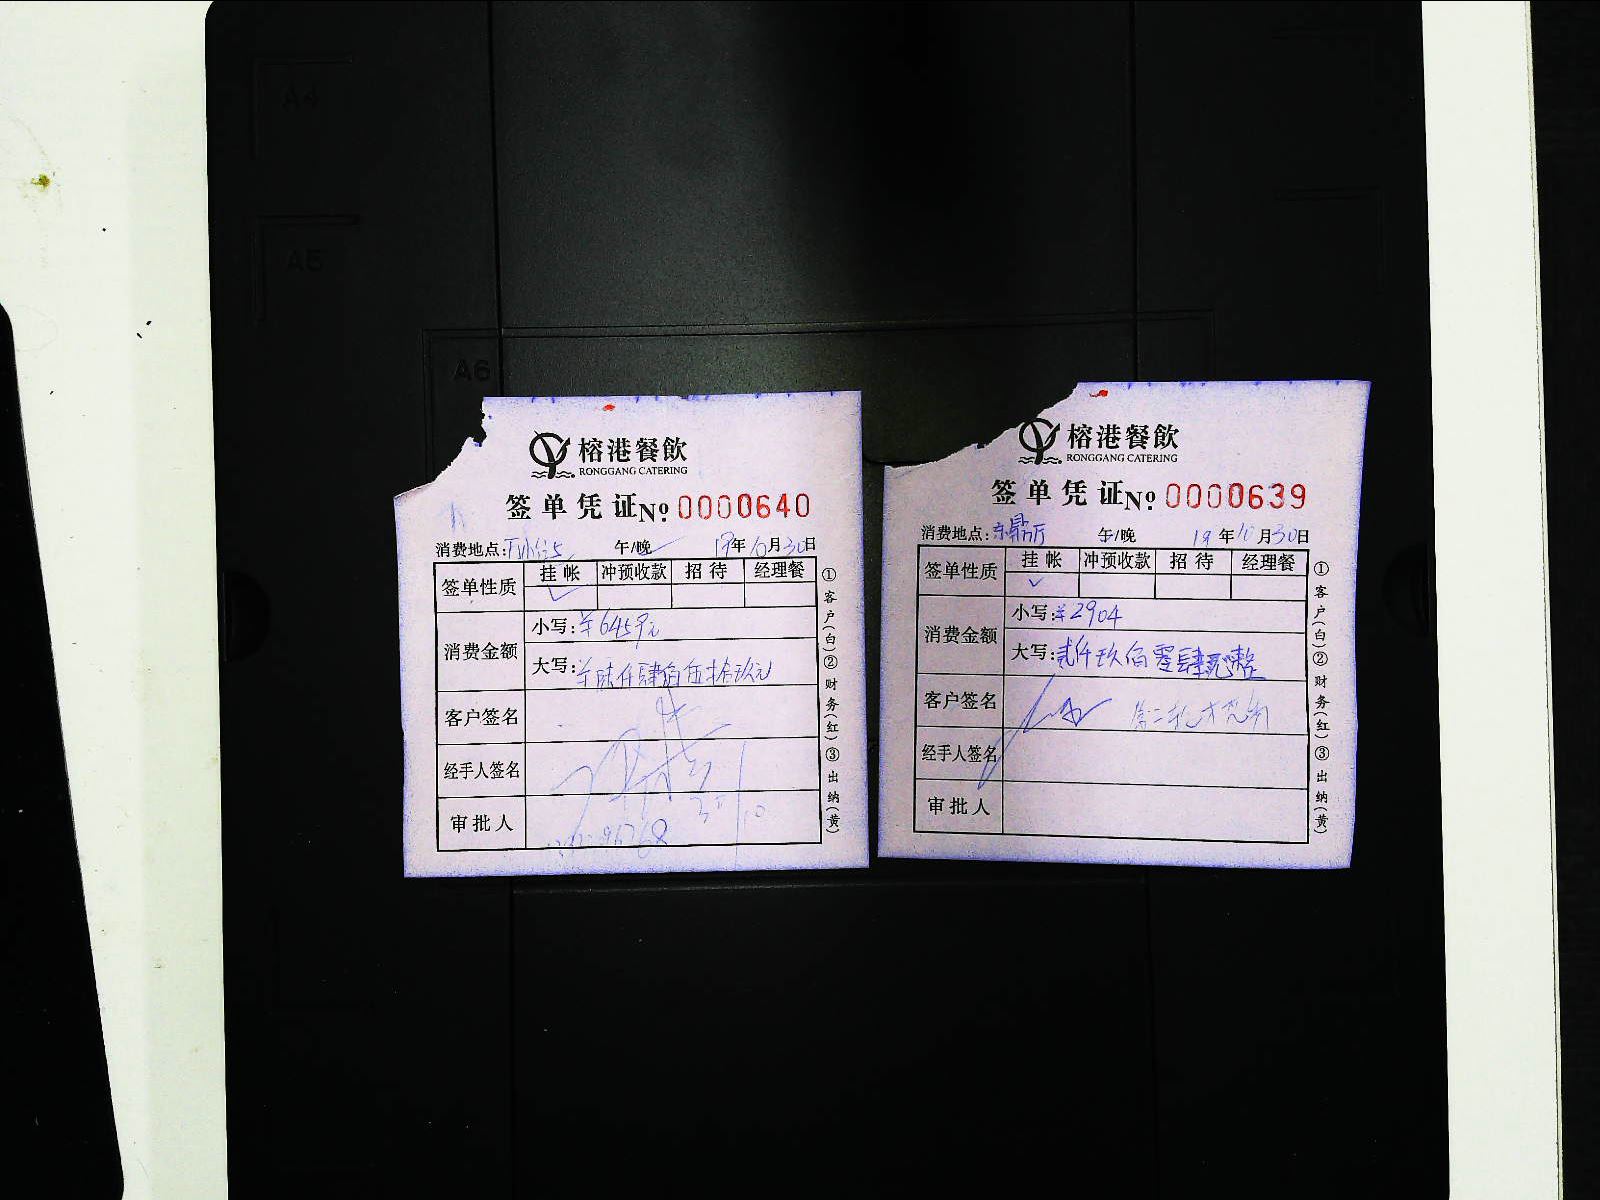 A4
A5
A6
榕港餐飲
RONGGANG CATERING
签单凭证№ 0000640
消费地点: 午/晚 19年10月30日
签单性质 挂帐 冲预收款 招待 经理餐
消费金额 小写:¥6459元
大写:¥陆仟肆佰伍拾玖元
客户签名
经手人签名
审批人
①客户(白)②财务(红)③出纳(黄)
榕港餐飲
RONGGANG CATERING
签单凭证№ 0000639
消费地点: 午/晚 19年10月30日
签单性质 挂帐 冲预收款 招待 经理餐
消费金额 小写:¥2904
大写:贰仟玖佰零肆元整
客户签名
经手人签名
审批人
①客户(白)②财务(红)③出纳(黄)